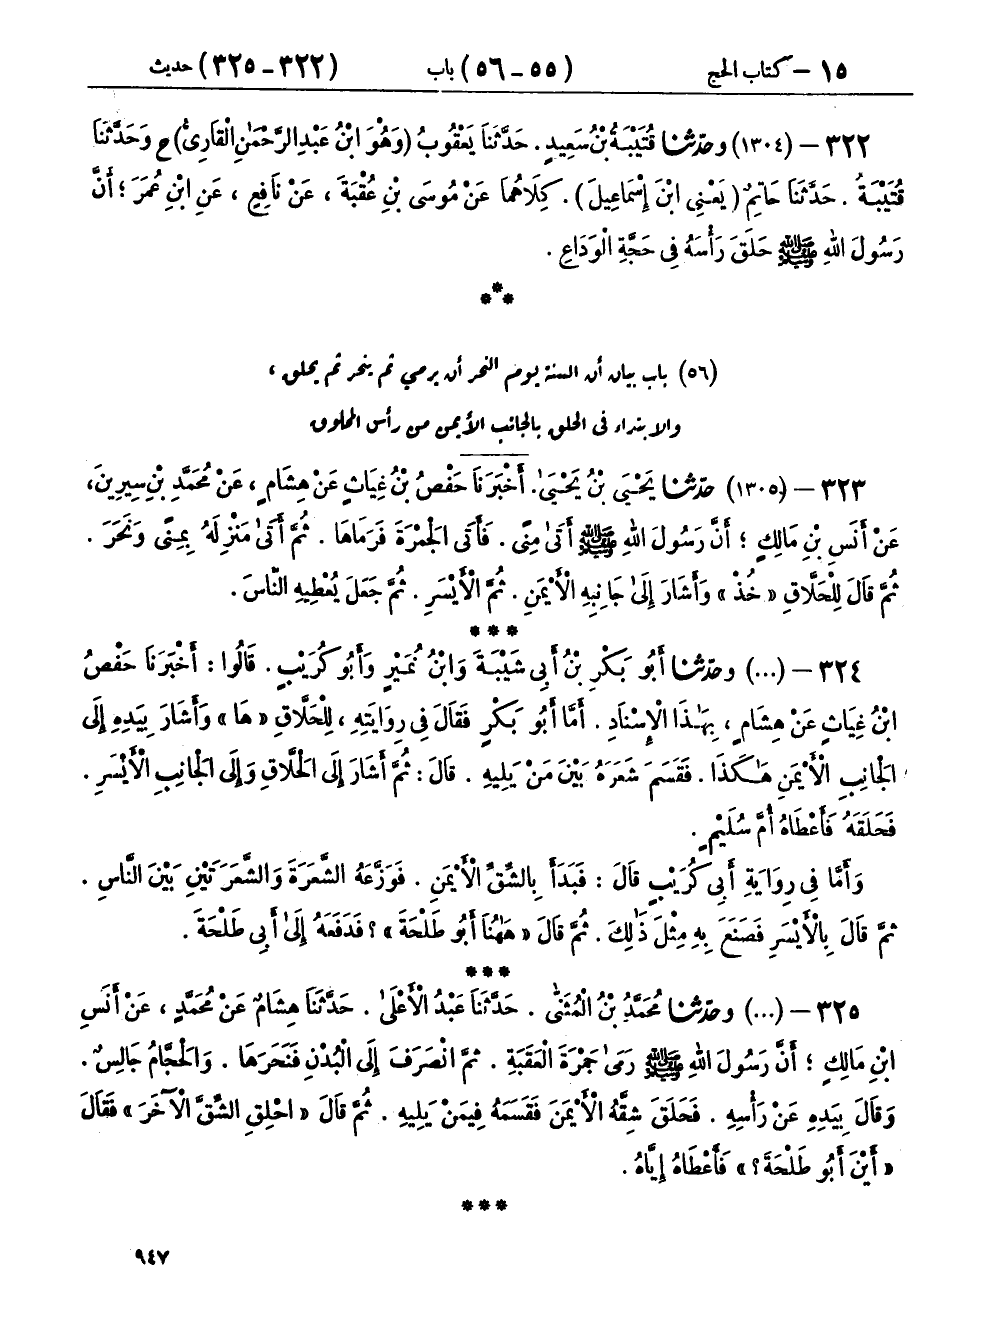 ١٥ - كتاب الحج (٥٥ - ٥٦) باب (٣٢٢ - ٣٢٥) حديث
٣٢٢ - (١٣٠٤) وحدّثنا قُتَيْبَةُ بْنُ سَعِيدٍ . حَدَّثَنَا يَعْقُوبُ (وَهُوَ ابْنُ عَبْدِ الرَّحْمَٰنِ الْقَارِىُّ) ح وَحَدَّثَنَا
قُتَيْبَةُ . حَدَّثَنَا حَاتِمٌ (يَعْنِى ابْنَ إِسْمَاعِيلَ) . كِلَاهُمَا عَنْ مُوسَى بْنِ عُقْبَةَ ، عَنْ نَافِعٍ ، عَنِ ابْنِ عُمَرَ ؛ أَنَّ
رَسُولَ اللهِ ﷺ حَلَقَ رَأْسَهُ فِى حَجَّةِ الْوَدَاعِ .
***
(٥٦) باب بيان أن السنة يوم النحر أن يرمي ثم ينحر ثم يحلق ،
والابتداء فى الحلق بالجانب الأيمن من رأس المحلوق
٣٢٣ - (١٣٠٥) حدّثنا يَحْيَى بْنُ يَحْيَىٰ . أَخْبَرَنَا حَفْصُ بْنُ غِيَاثٍ عَنْ هِشَامٍ ، عَنْ مُحَمَّدِ بْنِ سِيرِينَ ،
عَنْ أَنَسِ بْنِ مَالِكٍ ؛ أَنَّ رَسُولَ اللهِ ﷺ أَتَىٰ مِنًى . فَأَتَى الْجَمْرَةَ فَرَمَاهَا . ثُمَّ أَتَىٰ مَنْزِلَهُ بِمِنًى وَنَحَرَ .
ثُمَّ قَالَ لِلْحَلَّاقِ « خُذْ » وَأَشَارَ إِلَىٰ جَانِبِهِ الْأَيْمَنِ . ثُمَّ الْأَيْسَرِ . ثُمَّ جَعَلَ يُعْطِيهِ النَّاسَ .
***
٣٢٤ - (...) وحدّثنا أَبُو بَكْرِ بْنُ أَبِى شَيْبَةَ وَابْنُ نُمَيْرٍ وَأَبُو كُرَيْبٍ . قَالُوا : أَخْبَرَنَا حَفْصُ
ابْنُ غِيَاثٍ عَنْ هِشَامٍ ، بِهَٰذَا الْإِسْنَادِ . أَمَّا أَبُو بَكْرٍ فَقَالَ فِى رِوَايَتِهِ ، لِلْحَلَّاقِ « هَا » وَأَشَارَ بِيَدِهِ إِلَى
الْجَانِبِ الْأَيْمَنِ هَٰكَذَا . فَقَسَمَ شَعَرَهُ بَيْنَ مَنْ يَلِيهِ . قَالَ : ثُمَّ أَشَارَ إِلَى الْحَلَّاقِ وَإِلَى الْجَانِبِ الْأَيْسَرِ .
فَحَلَقَهُ فَأَعْطَاهُ أُمَّ سُلَيْمٍ .
وَأَمَّا فِى رِوَايَةِ أَبِى كُرَيْبٍ قَالَ : فَبَدَأَ بِالشِّقِّ الْأَيْمَنِ . فَوَزَّعَهُ الشَّعَرَةَ وَالشَّعَرَتَيْنِ بَيْنَ النَّاسِ .
ثُمَّ قَالَ بِالْأَيْسَرِ فَصَنَعَ بِهِ مِثْلَ ذَٰلِكَ . ثُمَّ قَالَ « هَٰهُنَا أَبُو طَلْحَةَ » ؟ فَدَفَعَهُ إِلَىٰ أَبِى طَلْحَةَ .
***
٣٢٥ - (...) وحدّثنا مُحَمَّدُ بْنُ الْمُثَنَّىٰ . حَدَّثَنَا عَبْدُ الْأَعْلَىٰ . حَدَّثَنَا هِشَامٌ عَنْ مُحَمَّدٍ ، عَنْ أَنَسِ
ابْنِ مَالِكٍ ؛ أَنَّ رَسُولَ اللهِ ﷺ رَمَىٰ جَمْرَةَ الْعَقَبَةِ . ثُمَّ انْصَرَفَ إِلَى الْبُدْنِ فَنَحَرَهَا . وَالْحَجَّامُ جَالِسٌ .
وَقَالَ بِيَدِهِ عَنْ رَأْسِهِ . فَحَلَقَ شِقَّهُ الْأَيْمَنَ فَقَسَمَهُ فِيمَنْ يَلِيهِ . ثُمَّ قَالَ « احْلِقِ الشِّقَّ الْآخَرَ » فَقَالَ
« أَيْنَ أَبُو طَلْحَةَ ؟ » فَأَعْطَاهُ إِيَّاهُ .
***
٩٤٧